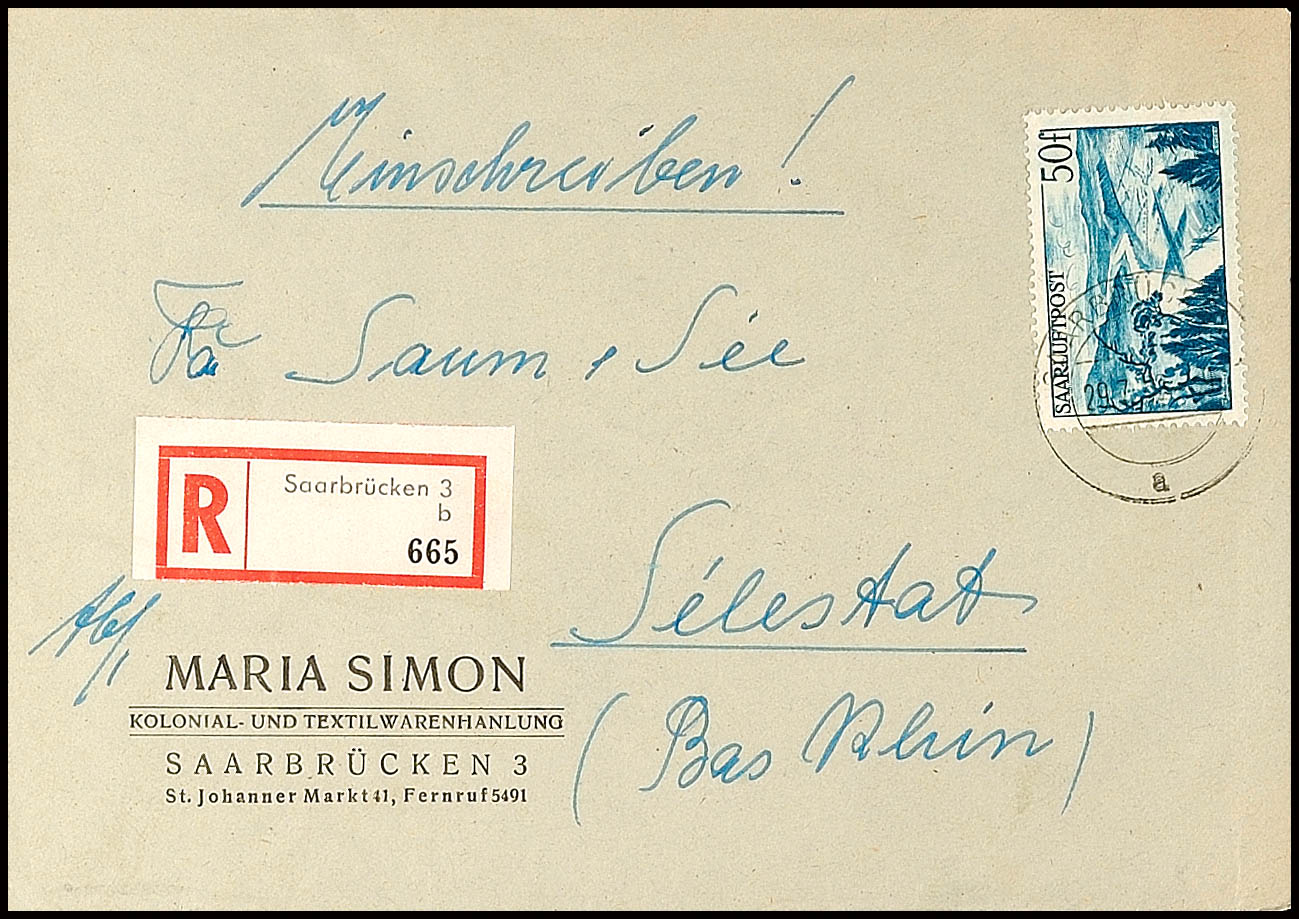 Einschreiben!
50f
SAARLUFTPOST
29.7.
a
Fa Saum, Sée
R
Saarbrücken 3
b
665
Sélestat
(Bas Rhin)
Abs,
MARIA SIMON
KOLONIAL- UND TEXTILWARENHANLUNG
SAARBRÜCKEN 3
St. Johanner Markt 41, Fernruf 5491